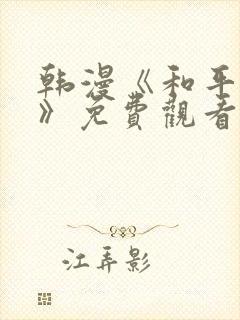 韩漫《和平
》免費觀看
江弄影